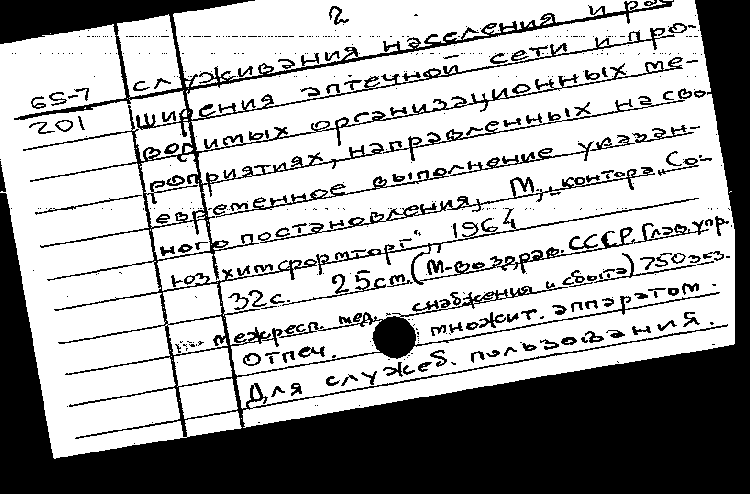 2
служивания населения и рас-
65-7
201
ширения аптечной сети и про-
водимых организационных ме-
роприятиях, направленных на сво-
евременное выполнение указан-
ного постановления, М., „контора „Со-
юзхимфармторг“, 1964
32с. 25см. (М-во здрав. СССР. Глав. упр.
межресп. мед. снабжения и сбыта) 750 экз.
Отпеч. множит. аппаратом.
Для служеб. пользования.